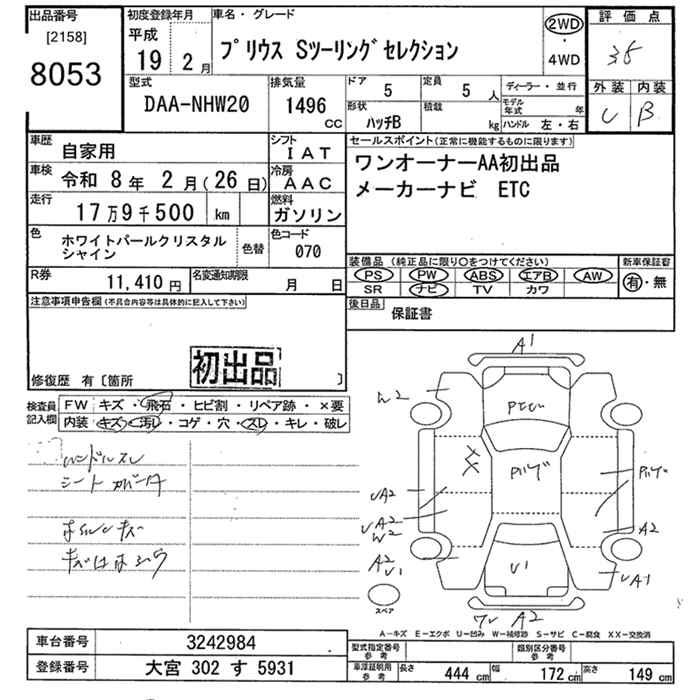 出品番号
[2158]
8053
初度登録年月
平成
19 2月
車名・グレード
プリウス Sツーリングセレクション
2WD
・
4WD
評価点
35
外装 内装
C B
型式
DAA-NHW20
排気量
1496
CC
ドア 5
定員 5 人
形状 ハッチB
積載 kg
ディーラー・並行
モデル年式 年
ハンドル 左・右
車歴 自家用
シフト IAT
車検 令和 8年 2月(26日)
冷房 AAC
走行 17万9千500 km
燃料 ガソリン
色 ホワイトパールクリスタル
シャイン
色替
色コード 070
R券 11,410円
名変通知期限 月 日
セールスポイント(正常に機能するものに限ります)
ワンオーナーAA初出品
メーカーナビ ETC
装備品(純正品に限り○をつけてください)
新車保証書
PS PW ABS エアB AW
SR ナビ TV カワ
有・無
後日品 保証書
注意事項申告欄(不具合内容等は具体的に記入して下さい)
初出品
修復歴 有〔箇所 〕
検査員記入欄
FW キズ・飛石・ヒビ割・リペア跡・×要
内装 キズ・汚レ・コゲ・穴・スレ・キレ・破レ
ハンドルスレ
シートカバー
A1
W2
UA2
UA2
W2
A2
U1
U1
A2
UA1
A2
スペア
A-キズ E-エクボ U-凹み W-補修跡 S-サビ C-腐食 XX-交換済
車台番号 3242984
登録番号 大宮 302 す 5931
型式指定番号 参考
類別区分番号 参考
車庫証明用 参考
長さ 444 cm
幅 172 cm
高さ 149 cm